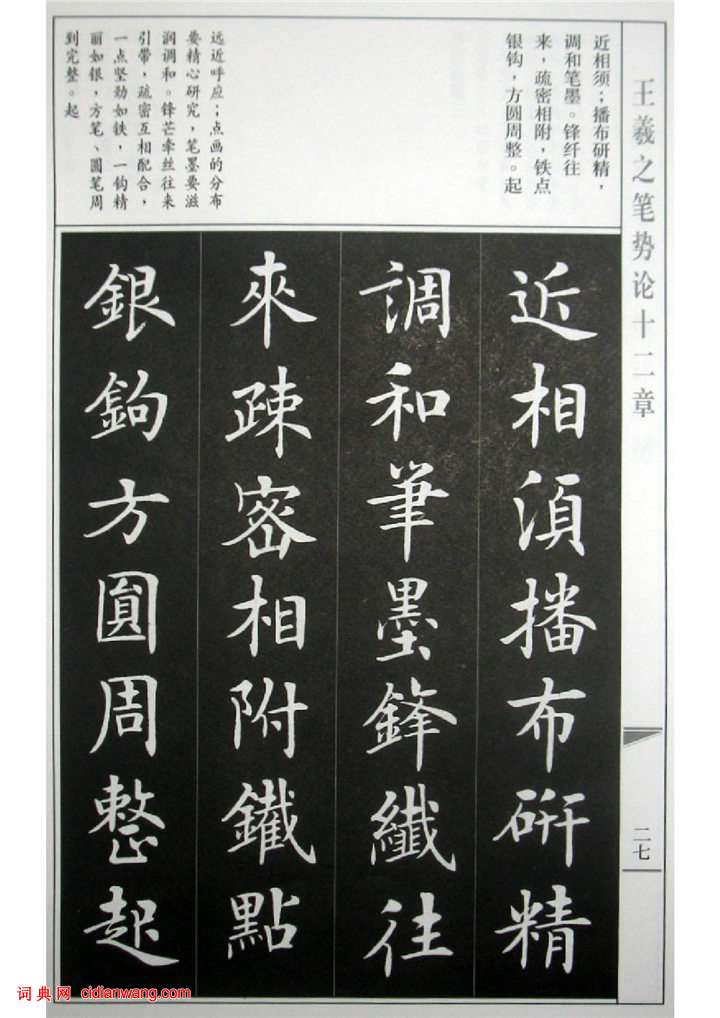 王羲之笔势论十二章
二七
近相须；播布研精，
调和笔墨。锋纤往
来，疏密相附，铁点
银钩，方圆周整。起
远近呼应；点画的分布
要精心研究，笔墨要滋
润调和。锋芒牵丝往来
引带，疏密互相配合，
一点坚劲如铁，一钩精
丽如银，方笔、圆笔周
到完整。起
近相須播布研精
調和筆墨鋒纖往
來疎密相附鐵點
銀鉤方圓周整起
词典网 cidianwang.com